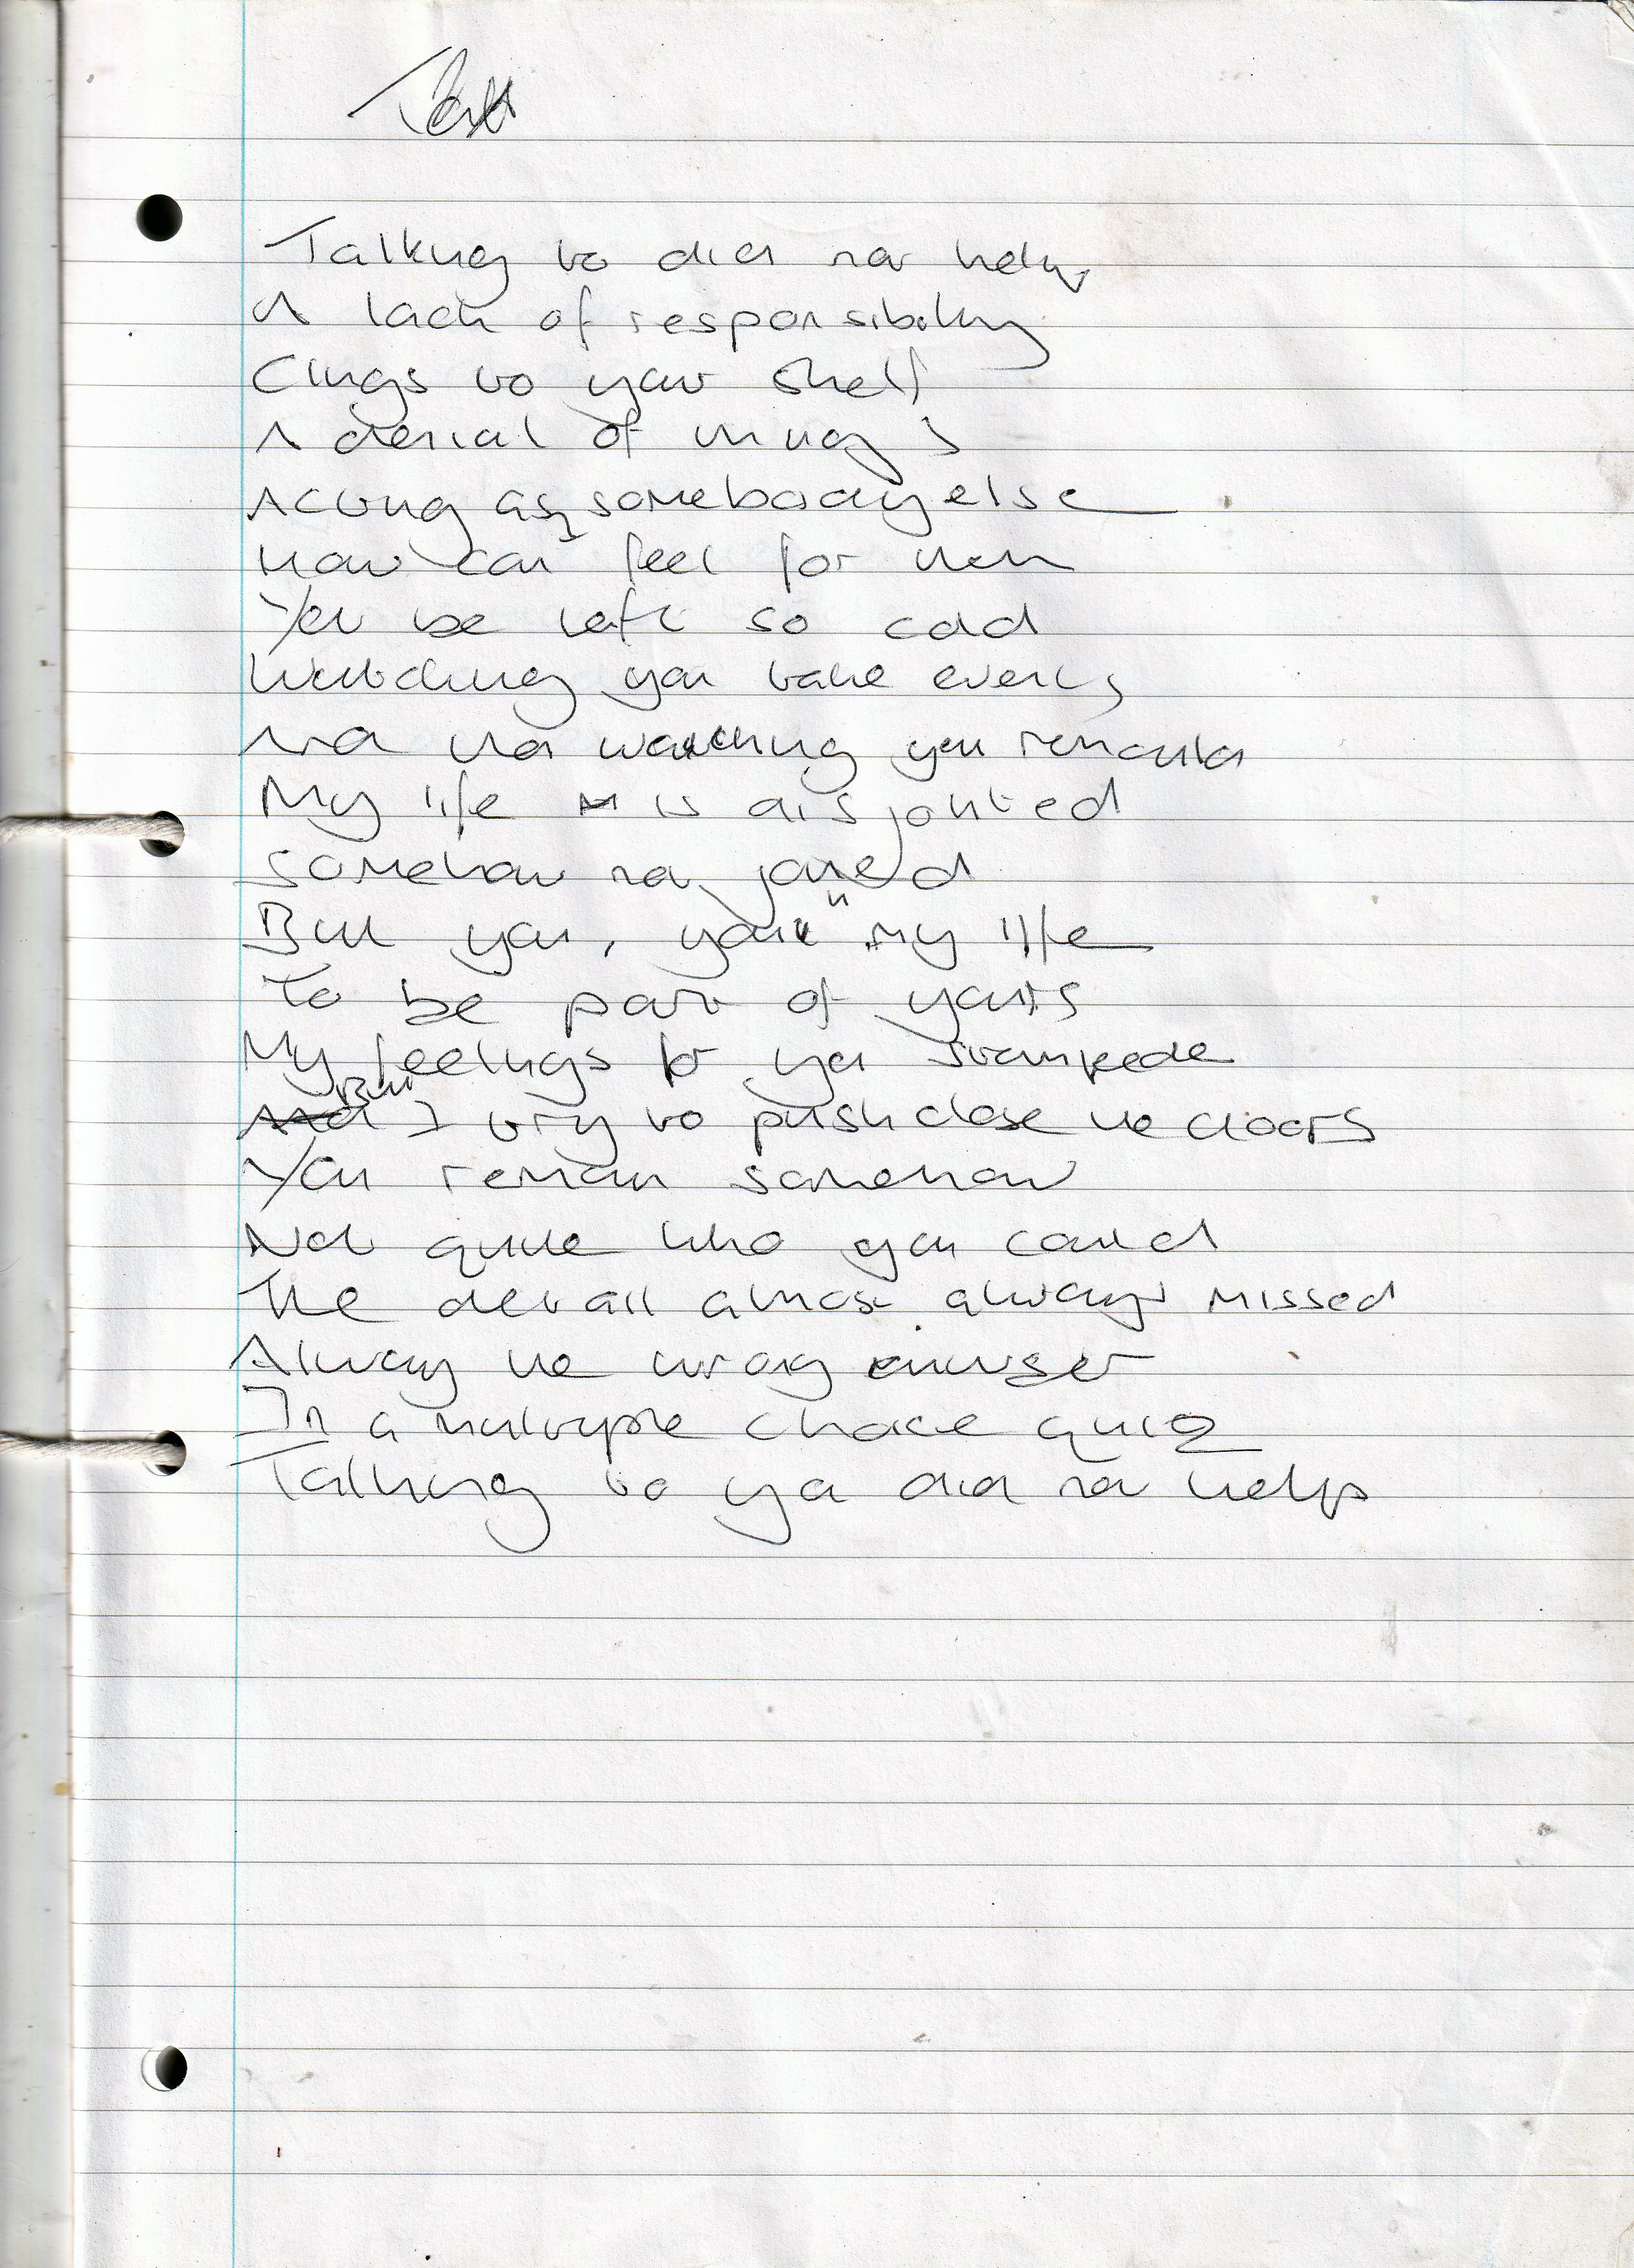 Talking to did not help
A lack of responsibility
Clings to your shelf
A denial of things
Acting as somebody else
How can I feel for them
Yet be left so cold
Watching you take events
And then watching you
My life is disjointed
Somehow not joined
But you, your my life
To be part of yours
My feelings for you stampede
But I try to push close the doors
You remain somehow
Not quite who you could
The detail almost always missed
Always the wrong answer
In a multiple choice quiz
Talking to ya did not help